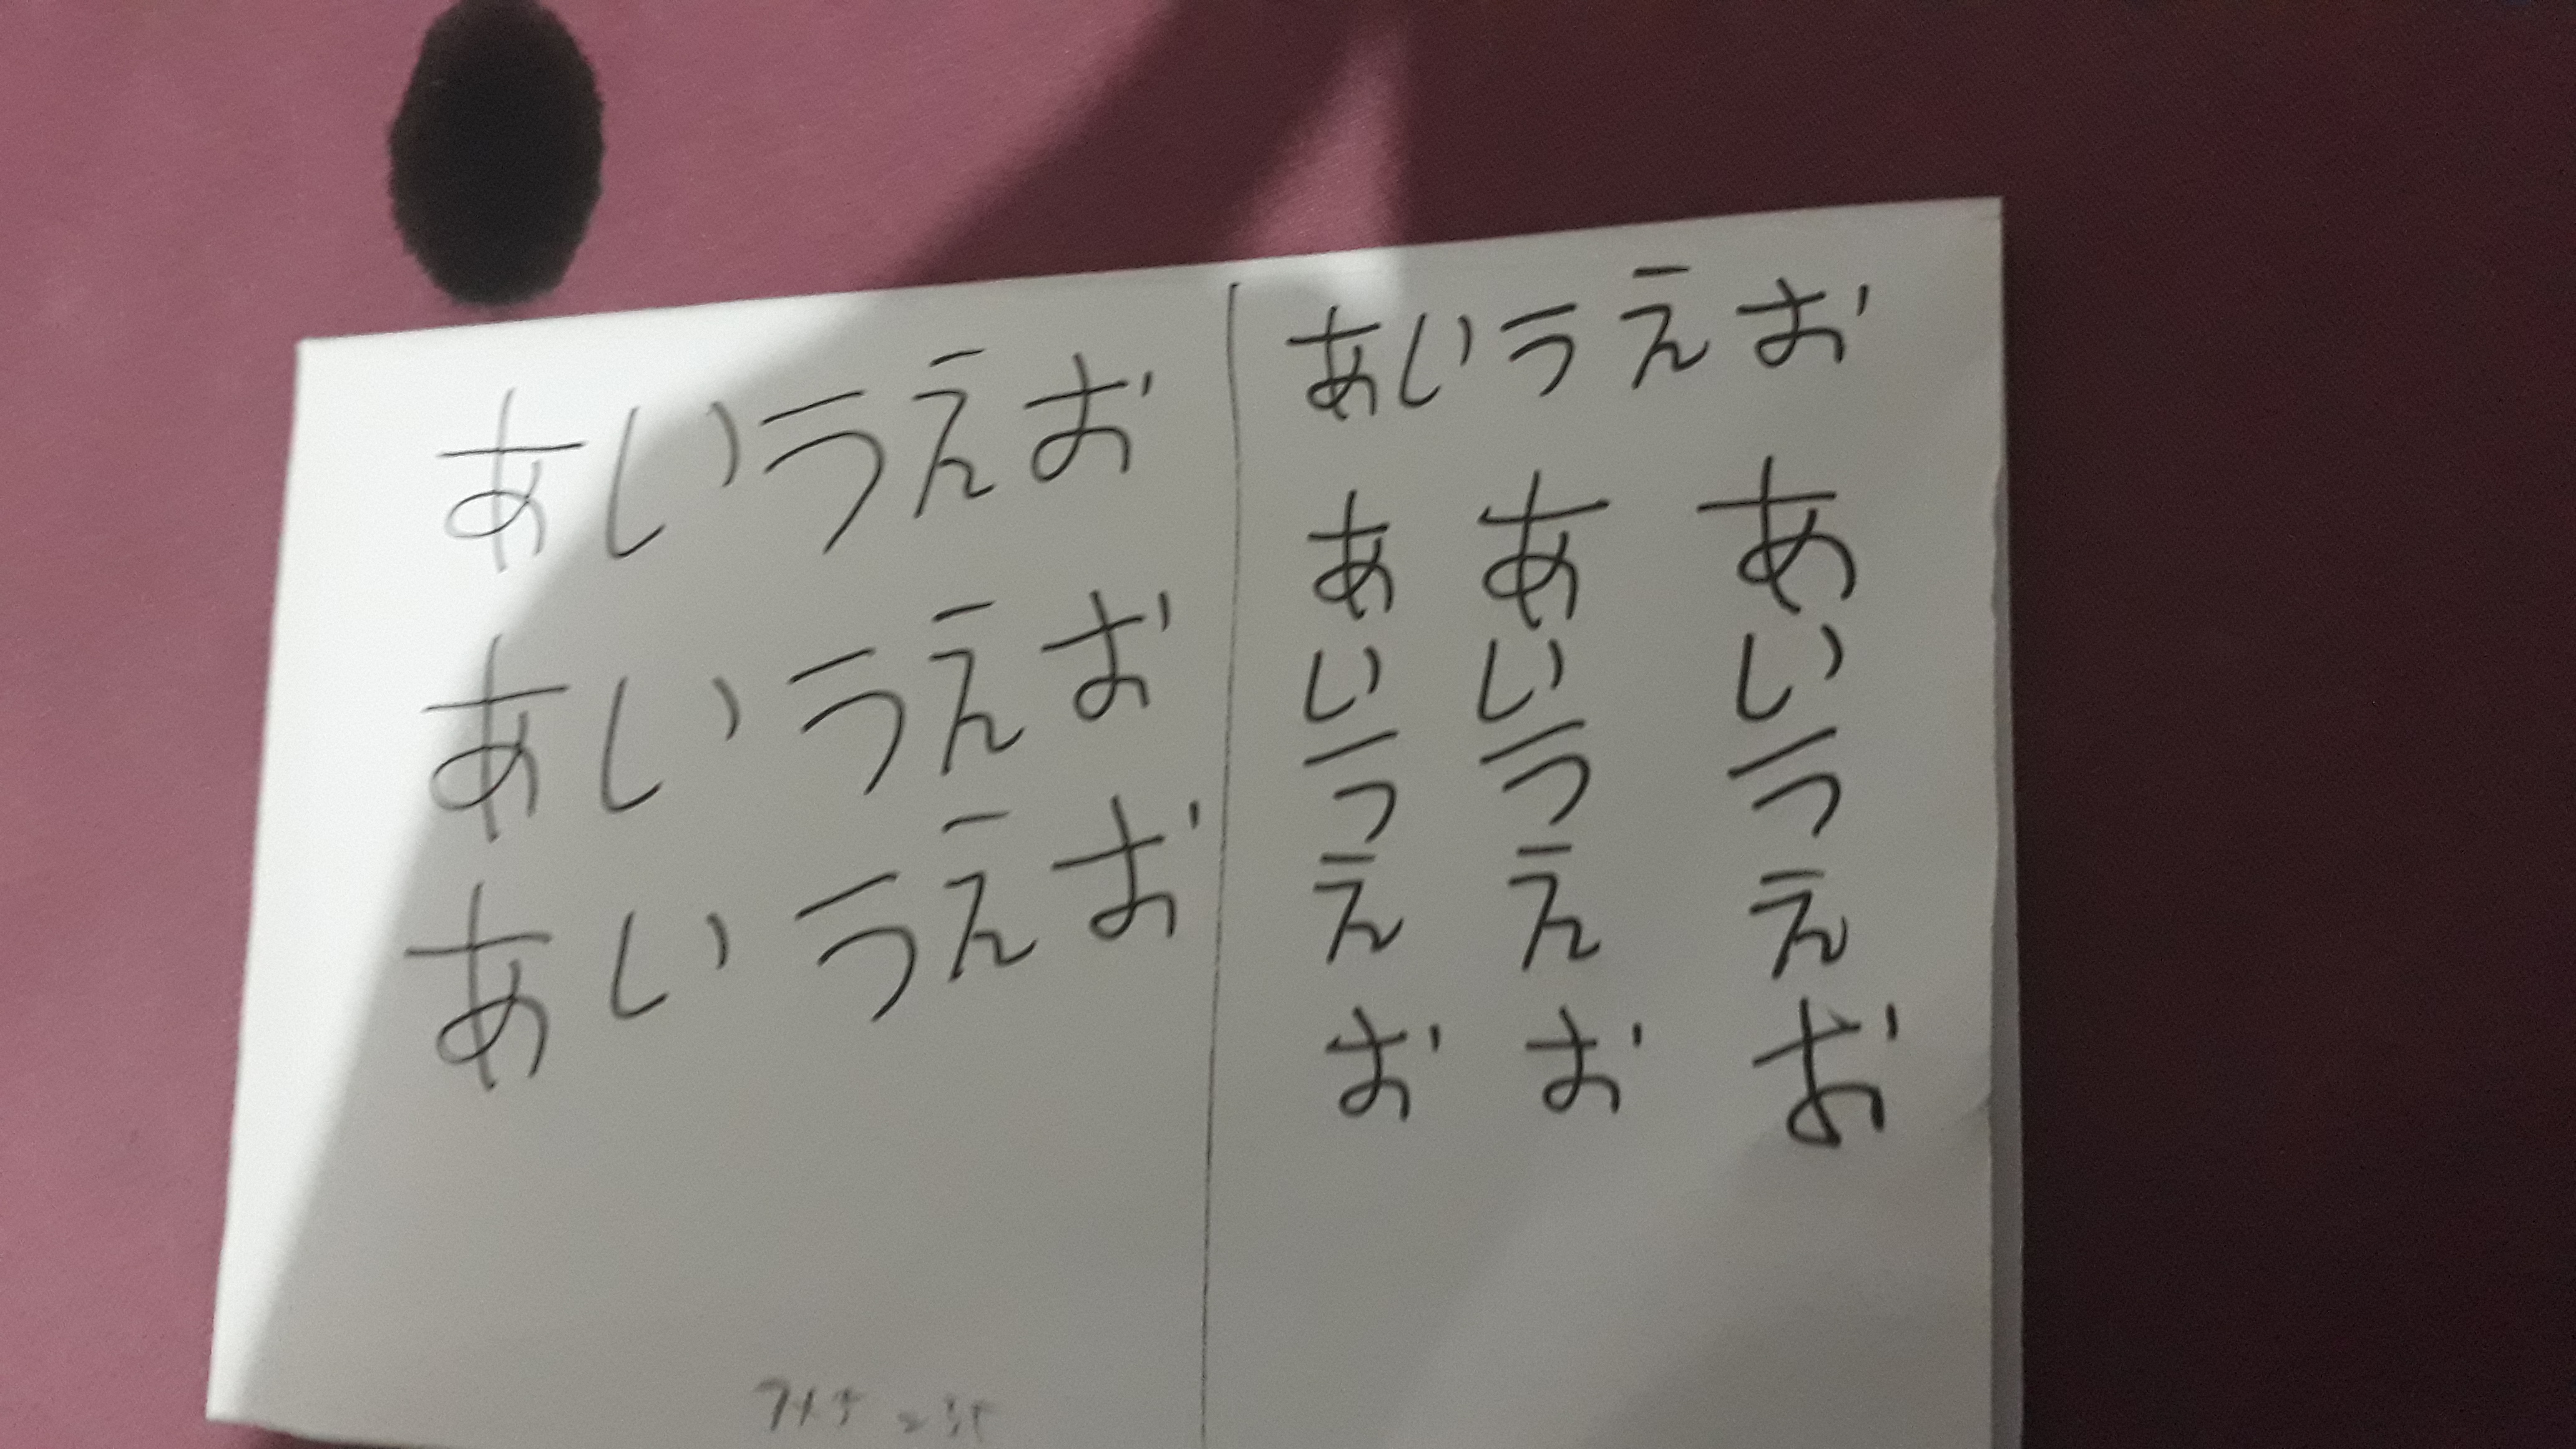 あいうえお
あいうえお
あいうえお
7×5=35
あいうえお
あああ
いいい
ううう
えええ
おおお